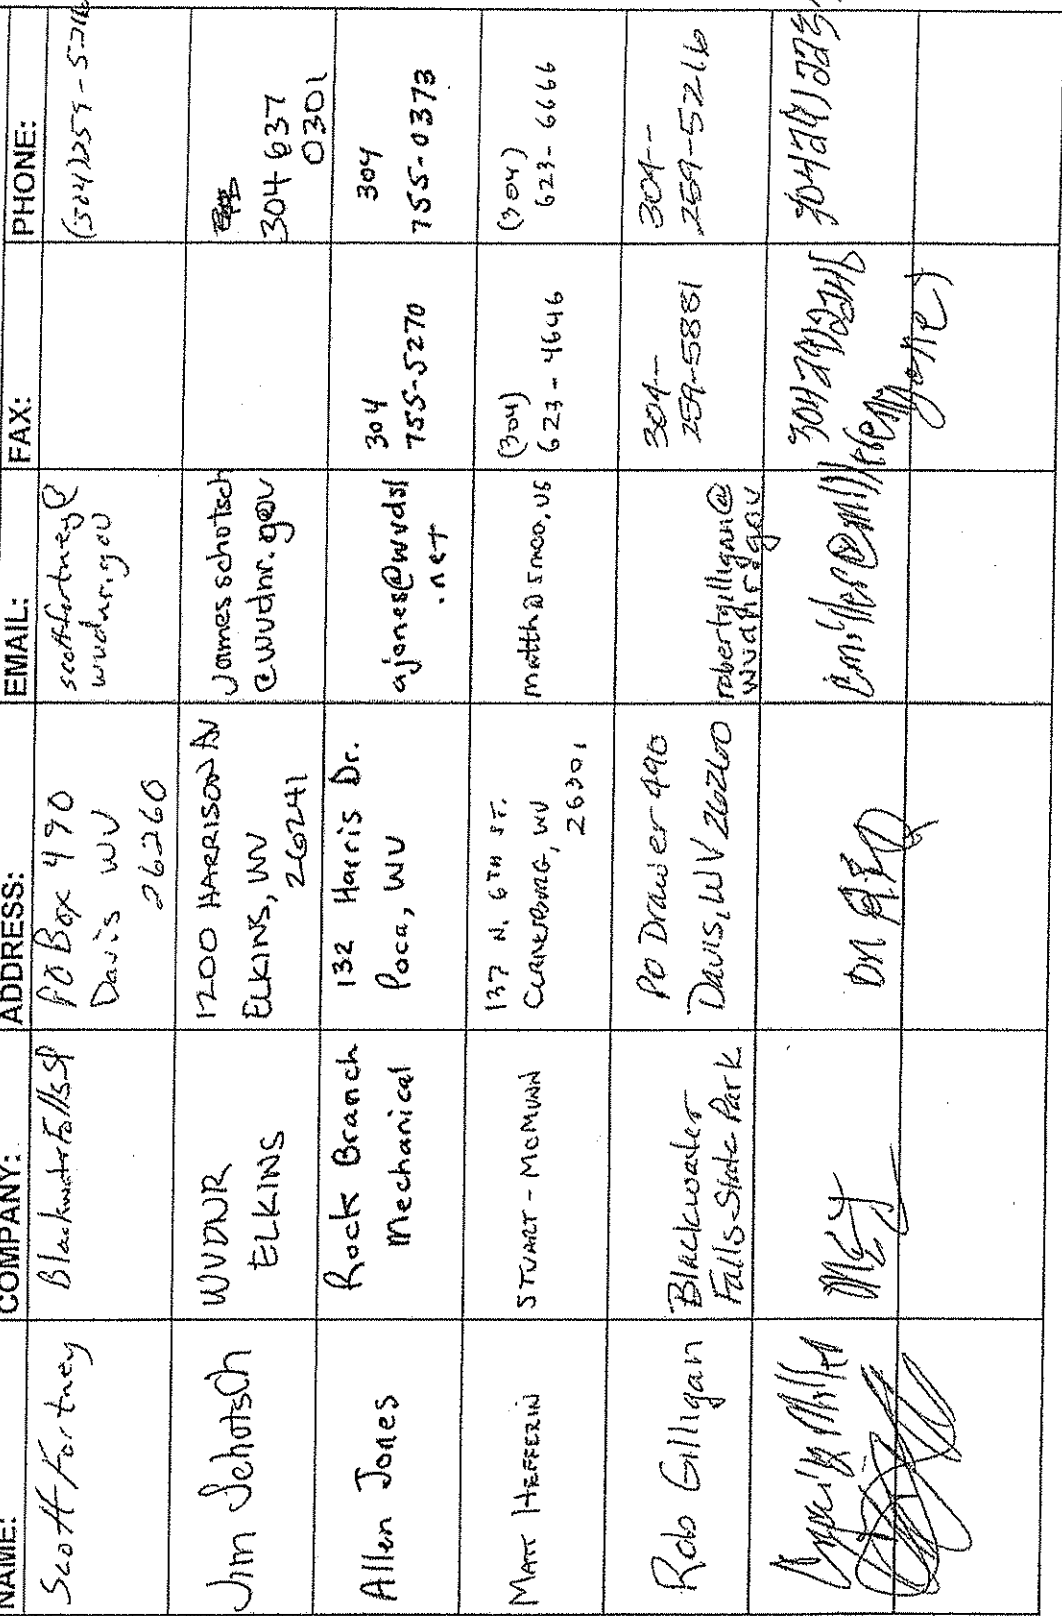 NAME:
COMPANY:
ADDRESS:
EMAIL:
FAX:
PHONE:
Scott Fortney
Blackwater Falls SP
PO Box 490
Davis WV
26260
scottfortney@
wvdnr.gov
(304)259-5216
Jim Schotsch
WVDNR
ELKINS
1200 HARRISON AV
ELKINS, WV
26241
jamesschotsch
@wvdnr.gov
304 637
0301
Allen Jones
Rock Branch
Mechanical
132 Harris Dr.
Poca, WV
ajones@wvdsl
.net
304
755-5270
304
755-0373
MATT HEFFERIN
STUART-MCMUNN
137 N. 6TH ST.
CLARKSBURG, WV
26301
matth@smco.us
(304)
623-4646
(304)
623-6666
Rob Gilligan
Blackwater
Falls State Park
PO Drawer 490
Davis, WV 26260
robertgilligan@
wvdnr.gov
304--
259-5881
304--
259-5216